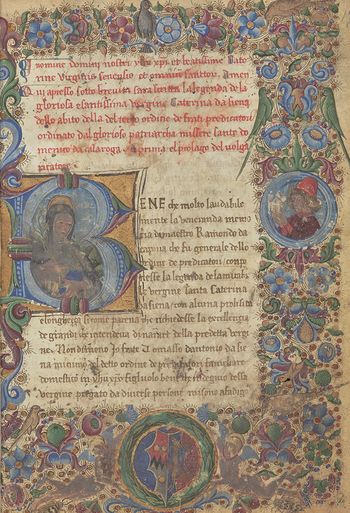 nomine domini nostri yhu xpi et beatissime Cate
rine Virginis senensis et omnium sanctor. Amen
Qui apresso sotto brevita sara scritta la legenda de la
gloriosa e santissima vergine Caterina da siena
dello abito della del terzo ordine de frati predicatori
ordinato dal glorioso patriarcha missere santo do
menico da calaroga. prima el prolago del volga
rizatore.
BENE che molto laudabile
mente la veneranda memo
ria da maestro Ramondo da
capua che fu generale dello
ordine de predicatori compo
nesse la legenda de la mirabi
le vergine santa Caterina
da siena, con alcuna prolissita
e longheza secome pareva che richiedesse la excellencia
de grandi che intendeva di narrare della predetta vergi
ne. Nondimeno yo frate Tomasso dantonio da sie
na minimo del detto ordine de predicatori familiare
domestico in yhu xpo figliuolo benche indegno dessa
vergine pregato da diverse persone misono afadig